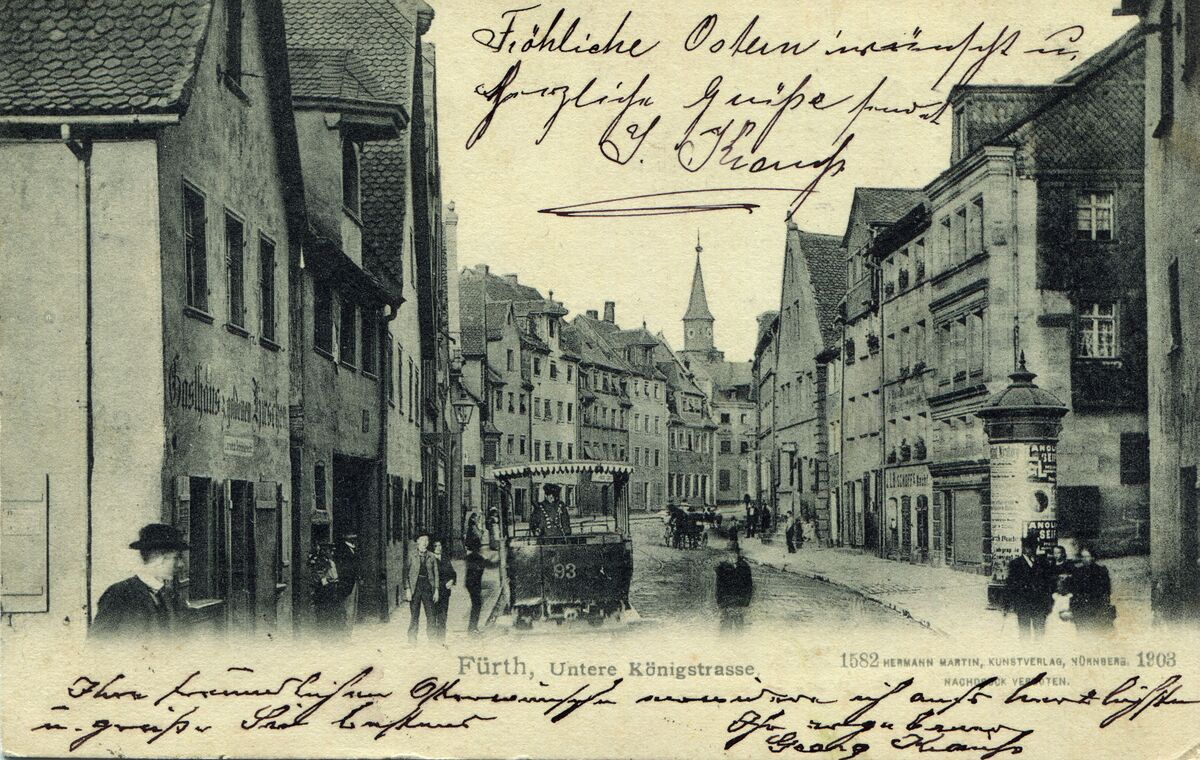 Fröhliche Ostern wünscht u.
Herzliche Grüße sendet
Krauß
Gasthaus z. goldenen Hirschen
93
ANOL
SEI
ANOL
SEIF
Fürth, Untere Königstrasse.
1582 HERMANN MARTIN, KUNSTVERLAG, NÜRNBERG. 1903
NACHDRUCK VERBOTEN.
Ihre freundlichen Osterwünsche erwidere ich aufs herzlichste
u. grüße Sie bestens
Ihr ergebener
Georg Krauß